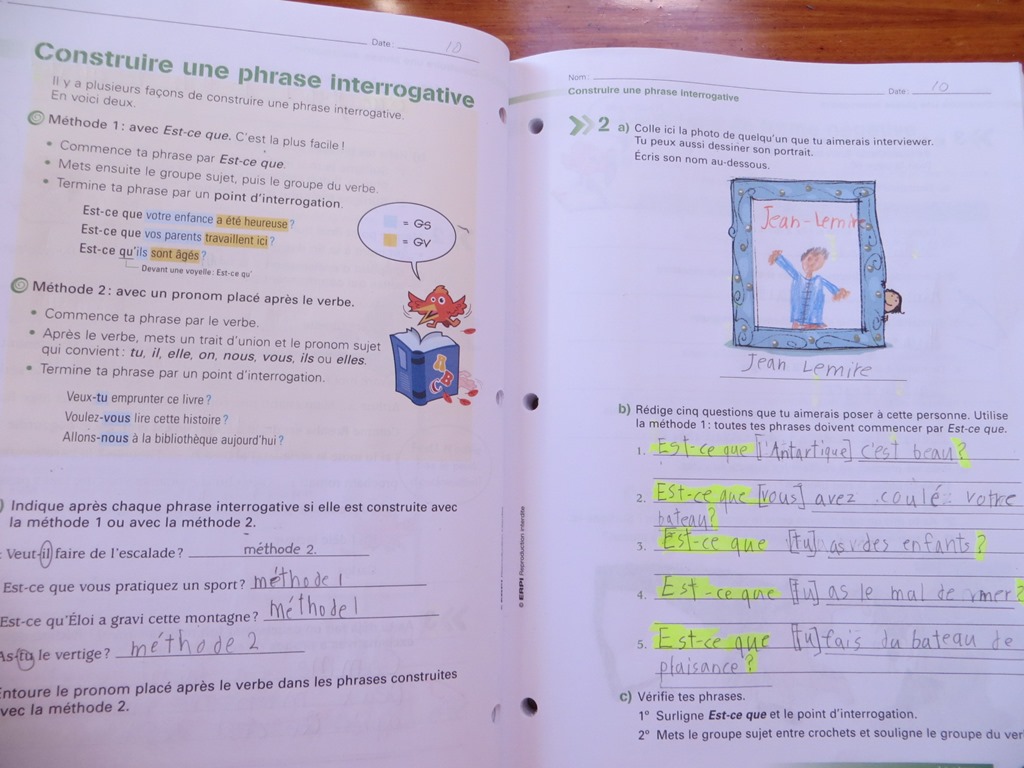 Date: 10
Construire une phrase interrogative
Il y a plusieurs façons de construire une phrase interrogative.
En voici deux.
Méthode 1 : avec Est-ce que. C'est la plus facile !
• Commence ta phrase par Est-ce que.
• Mets ensuite le groupe sujet, puis le groupe du verbe.
• Termine ta phrase par un point d'interrogation.
Est-ce que votre enfance a été heureuse ?
Est-ce que vos parents travaillent ici ?
Est-ce qu'ils sont âgés ?
Devant une voyelle : Est-ce qu'
= GS
= GV
Méthode 2 : avec un pronom placé après le verbe.
• Commence ta phrase par le verbe.
• Après le verbe, mets un trait d'union et le pronom sujet
qui convient : tu, il, elle, on, nous, vous, ils ou elles.
• Termine ta phrase par un point d'interrogation.
Veux-tu emprunter ce livre ?
Voulez-vous lire cette histoire ?
Allons-nous à la bibliothèque aujourd'hui ?
A
B
C
) Indique après chaque phrase interrogative si elle est construite avec
la méthode 1 ou avec la méthode 2.
Veut-il faire de l'escalade ? méthode 2.
Est-ce que vous pratiquez un sport ? méthode 1
Est-ce qu'Éloi a gravi cette montagne ? méthode 1
As-tu le vertige ? méthode 2
Entoure le pronom placé après le verbe dans les phrases construites
avec la méthode 2.
© ERPI Reproduction interdite
Nom : Date : 10
Construire une phrase interrogative
2 a) Colle ici la photo de quelqu'un que tu aimerais interviewer.
Tu peux aussi dessiner son portrait.
Écris son nom au-dessous.
Jean-Lemire
Jean Lemire
b) Rédige cinq questions que tu aimerais poser à cette personne. Utilise
la méthode 1 : toutes tes phrases doivent commencer par Est-ce que.
1. Est-ce que [l'Antartique] c'est beau?
2. Est-ce que [vous] avez coulé votre
bateau?
3. Est-ce que [tu] as des enfants?
4. Est-ce que [tu] as le mal de mer?
5. Est-ce que [tu] fais du bateau de
plaisance?
c) Vérifie tes phrases.
1° Surligne Est-ce que et le point d'interrogation.
2° Mets le groupe sujet entre crochets et souligne le groupe du ver